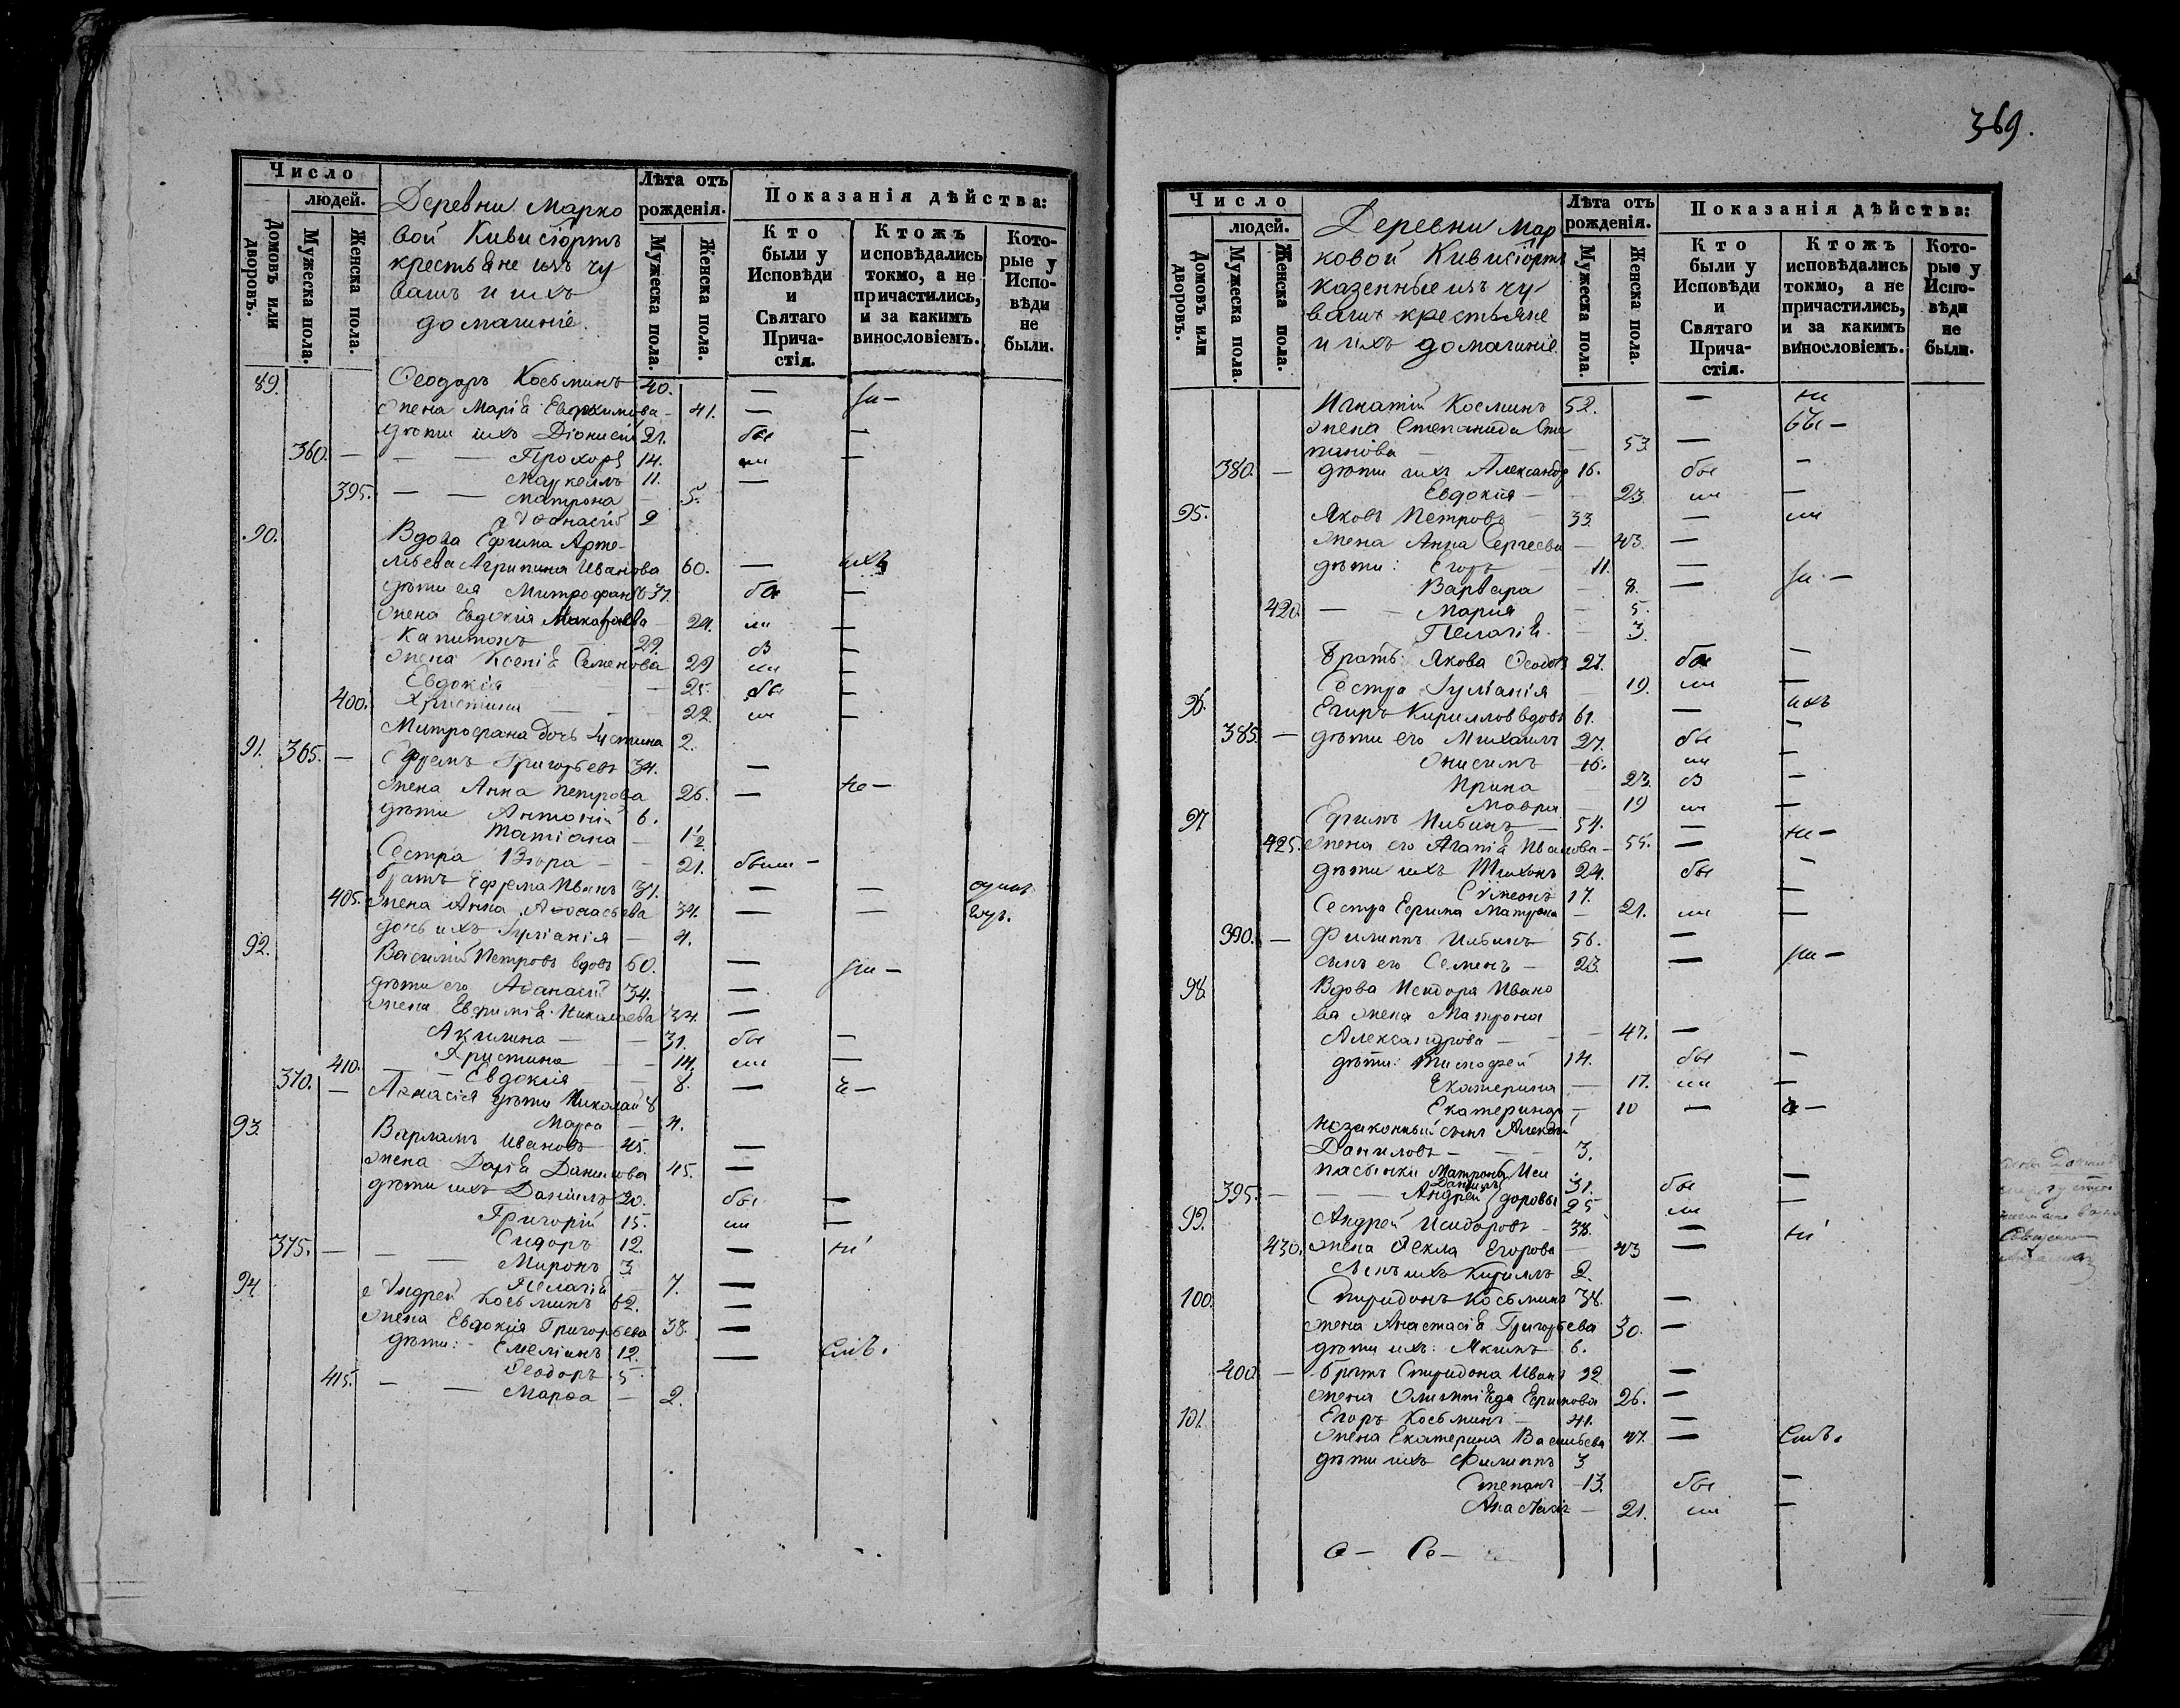 Число
людей.
Домовъ или дворовъ.
Мужеска пола.
Женска пола.
Лѣта отъ рожденія.
Мужеска пола.
Женска пола.
Показанія дѣйства:
Кто были у Исповѣди и Святаго Причастія.
Ктожъ исповѣдались токмо, а не причастились, и за какимъ винословіемъ.
Которые у Исповѣди не были.
Деревни Марко
вой Кивисюртъ
крестьяне изъ чу
вашъ и ихъ
домашніе.
89. Ѳеодоръ Косьминъ 40. —
жена Марія Евѳимова - 41. —
дѣти ихъ Діонисій 21. бы —
360. — — — Прохоръ 14. ли —
Маркеллъ 11. —
395. — — Матрона — 5.
Аѳонасій 2
90. Вдова Ефима Арте-
мьева Агрипина Иванова 60. — ихъ
дѣти ея Митрофанъ 37. бы —
жена Евдокія Макарова 24. ли —
Капитонъ 22. —
жена Ксенія Семенова 29 ли —
Евдокія — 25. бы —
400. Христина — 22. ли —
Митрофана дочь Устина 2.
91. 365. — Ефремъ Григорьевъ 34. —
жена Анна Петрова 26. —
дѣти Антоній 6.
Татіана — 1½
Сестра — — 21. были —
братъ Ефрема Иванъ 31. — —
405. жена Анна Аѳонасьева 34. — —
дочь ихъ Іуліанія — 4.
92. Василій Петровъ вдовъ 60. —
дѣти его Аѳанасій 34. —
жена Евфимія Николаева 34. —
Акилина — — 31. бы —
410. Христина — — 14. ли —
Евдокія — 8. —
370. — Аѳнасія дѣти Николай 8
Марѳа — 4.
93. Варламъ Ивановъ 45. —
жена Дарія Данилова 45. —
дѣти ихъ Даніилъ 20. бы —
Григорій 15. ли —
375. — — Сидоръ 12. —
— — Миронъ 3
Пелагія — 7. —
94. Андрей Косьминъ 62. —
жена Евдокія Григорьева 38. —
дѣти: Емеліянъ 12. —
Ѳеодоръ 5
415. — — Марѳа — 2.
369.
Число
людей.
Домовъ или дворовъ.
Мужеска пола.
Женска пола.
Лѣта отъ рожденія.
Мужеска пола.
Женска пола.
Показанія дѣйства:
Кто были у Исповѣди и Святаго Причастія.
Ктожъ исповѣдались токмо, а не причастились, и за какимъ винословіемъ.
Которые у Исповѣди не были.
Деревни Мар
ковой Кивисюртъ
казенные изъ чу
вашъ крестьяне
и ихъ домашніе.
Игнатій Косминъ 52. —
жена Степанида Сте
панова — 53. —
380. — дѣти ихъ Александр 16. бы —
Евдокія — 23. ли —
95. Яковъ Петровъ 33. —
жена Анна Сергеева — 43. —
дѣти: Егоръ 11. —
Варвара — 8. —
420. — — Марія — 5.
Пелагія — 3.
Братъ Якова Ѳеодоръ 27. бы —
Сестра Іуліанія — 19. ли —
96. Егоръ Кирилловъ вдовъ 61. — ихъ
385. — дѣти его Михаилъ 27. бы —
Онисимъ 16. ли —
Ирина 23. —
Мавра — 19 ли —
97 Ефимъ Ильинъ — 54. —
425. жена его Агапія Иванова - 55. —
дѣти ихъ Тихонъ 24. бы —
Сѵмеонъ 17. —
Сестра Ефима Матрона — 21. ли —
390. — Филиппъ Ильинъ 56. —
сынъ его Семенъ — 23. —
98. Вдова Исидора Ивано
ва жена Матрона
Александрова — — 47. —
дѣти: Тимофей 14. бы —
Екатерина — 17. ли —
Екатерина — 10 —
незаконный сынъ Алексѣй
Даниловъ — — 3.
пасынки Матроны Иси
Даніилъ 31. бы —
395. — — Андрей доровы 25 ли —
99. Андрей Исидоровъ 38. —
430. жена Ѳекла Егорова — 43 —
сынъ ихъ Кириллъ 2.
100. Спиридонъ Косьминъ 38. —
жена Анастасія Григорьева 30. —
дѣти ихъ: Якимъ 6.
400 — братъ Спиридона Иванъ 32 —
жена Олимпіада Ефимова 26. —
101. Егоръ Косьминъ — 41. —
жена Екатерина Васильева 47. —
дѣти ихъ Филиппъ 3
Степанъ 13. бы —
Анастасія — 21. ли —